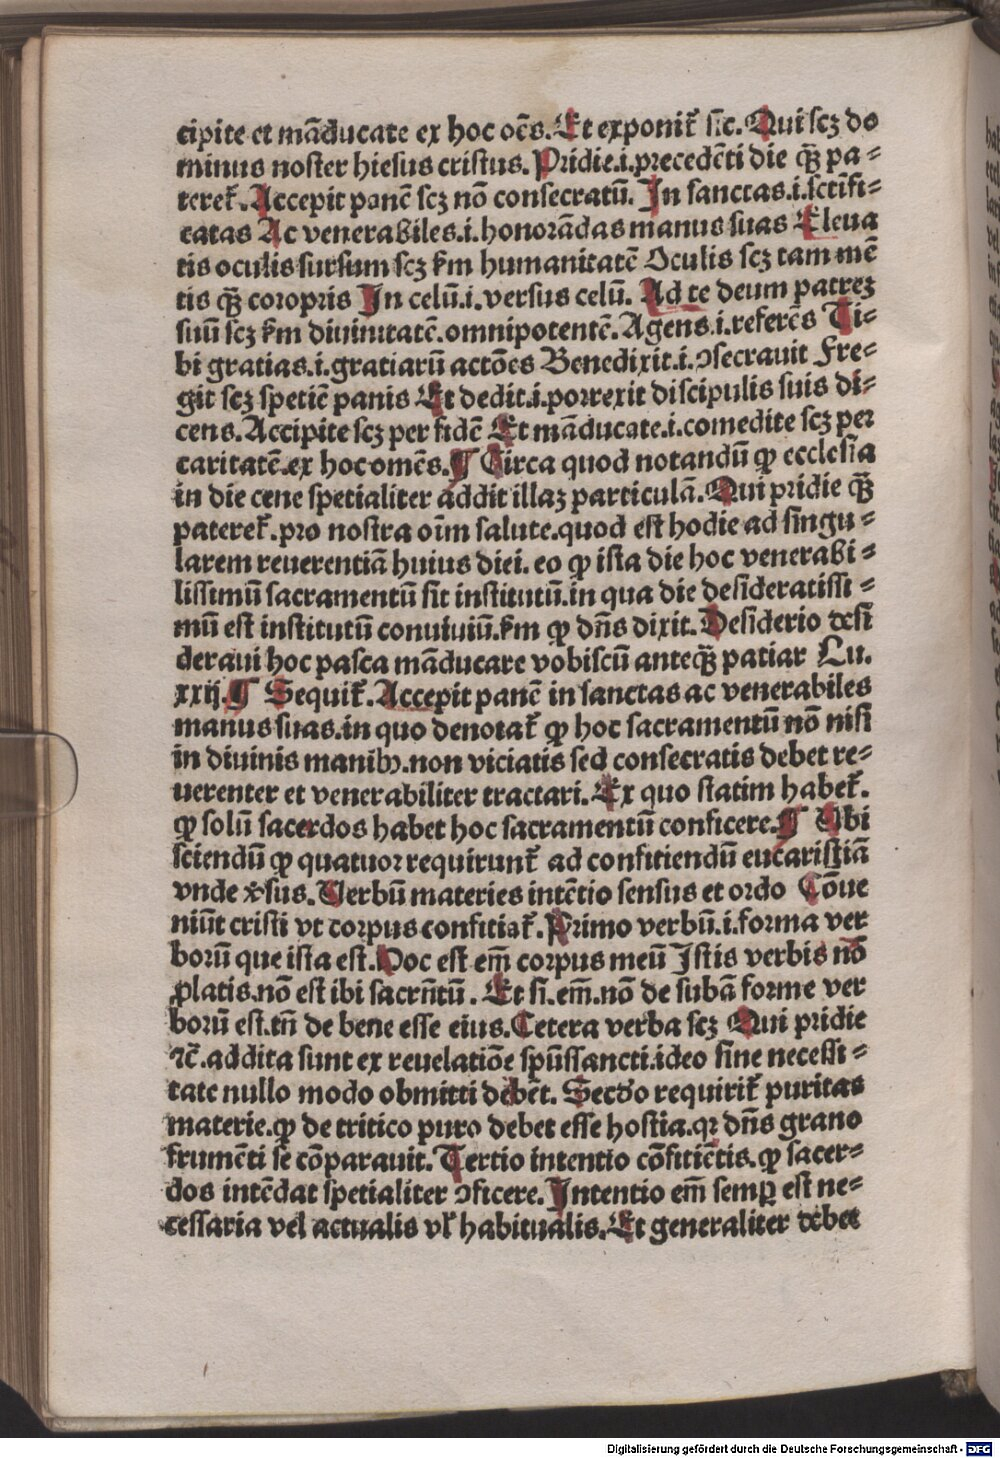 cipite et mãducate ex hoc oẽs. Et exponit᷑ sic. Qui scꝫ do
minus noster hiesus cristus. Pridie.i.precedẽti die qͣ̃ pa⸗
teret᷑. Accepit panẽ scꝫ nõ consecratũ. In sanctas.i.sctĩfi⸗
catas Ac venerabiles.i.honorãdas manus suas Eleua
tis oculis sursum scꝫ ẜm humanitatẽ Oculis scꝫ tam mẽ
tis qͣ̃ coropris In celũ.i.versus celũ. Ad te deum patreꝫ
suũ scꝫ ẜm diuinitatẽ.omnipotentẽ. Agens.i.referẽs Ti⸗
bi gratias.i.gratiarũ actões Benedixit.i.ↄsecrauit Fre⸗
git scꝫ spetiẽ panis Et dedit.i.porrexit discipulis suis di⸗
cens. Accipite scꝫ per fidẽ Et mãducate.i.comedite scꝫ per
caritatẽ.ex hoc omẽs. ¶ Circa quod notandũ ꝙ ecclesia
in die cene spetialiter addit illaꝫ particulã. Qui pridie qͣ̃
pateret᷑.pro nostra oĩm salute.quod est hodie ad singu⸗
larem reuerentiã huius diei. eo ꝙ ista die hoc venerabi⸗
lissimũ sacramentũ sit institutũ.in qua die desideratissi⸗
mũ est institutũ conuiuiũ.ẜm ꝙ dñs dixit. Desiderio desi
deraui hoc pasca mãducare vobiscũ anteqͣ̃ patiar Lu.
xxij. ¶ Sequit᷑. Accepit panẽ in sanctas ac venerabiles
manus suas.in quo denotat᷑ ꝙ hoc sacramentũ nõ nisi
in diuinis manibꝫ.non viciatis sed consecratis debet re⸗
uerenter et venerabiliter tractari. Ex quo statim habet᷑.
ꝙ solũ sacerdos habet hoc sacramentũ conficere. ¶ Ubi
sciendũ ꝙ quatuor requirunt᷑ ad confitiendũ eucaristiã
vnde v̾sus. Verbũ materies intẽtio sensus et ordo Cõue
niũt cristi vt corpus confitiat᷑. Primo verbũ.i.forma ver
borũ que ista est. Hoc est em̃ corpus meũ Istis verbis nõ
ꝓlatis.nõ est ibi sacrñtũ. Et si.em̃.nõ de subã forme ver
borũ est.tñ de bene esse eius. Cetera verba scꝫ Qui pridie
⁊c̃.addita sunt ex reuelatiõe spũssancti.ideo sine necessi⸗
tate nullo modo obmitti debẽt. Secdo requirit᷑ puritas
materie.ꝙ de tritico puro debet esse hostia.qꝛ dñs grano
frumẽti se cõparauit. Tertio intentio cõfitiẽtis.ꝙ sacer⸗
dos intẽdat spetialiter ↄficere. Intentio em̃ semꝑ est ne⸗
cessaria vel actualis vl̓ habitualis. Et generaliter debet
Digitalisierung gefördert durch die Deutsche Forschungsgemeinschaft - DFG